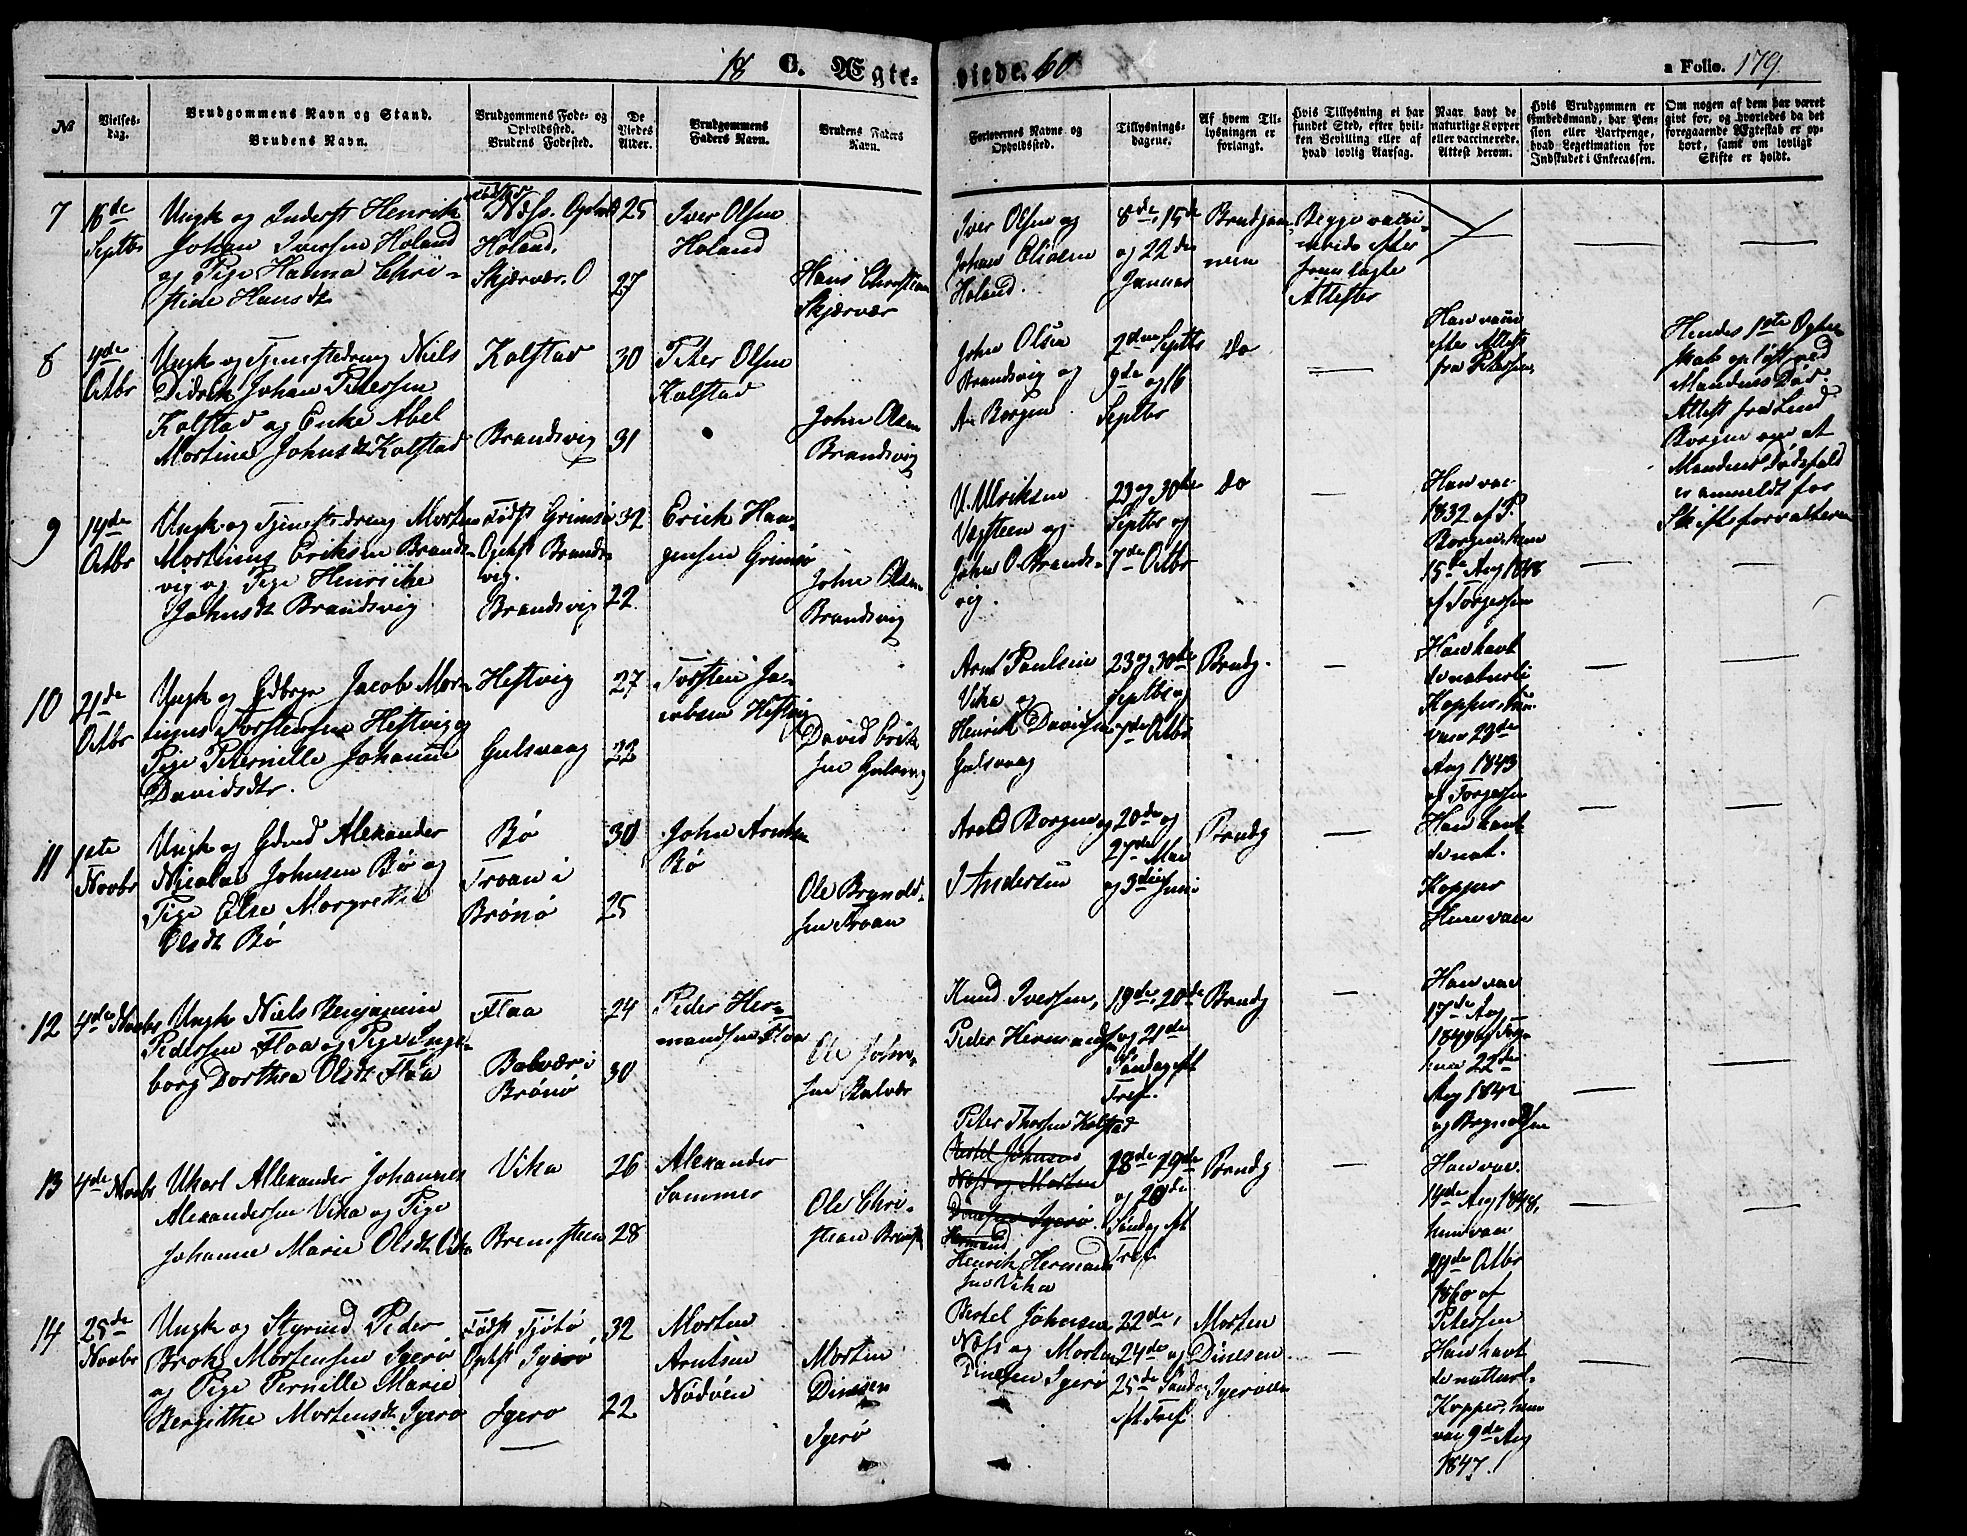 18 C. Ægte-viede. 60
a Folio. 179
No
Vielses-
dag.
Brudgommens Navn og Stand.
Brudens Navn.
Brudgommens Føde- og
Opholdssted.
Brudens Fødested.
De
Viedes
Alder.
Brudgommens
Faders Navn.
Brudens Faders
Navn.
Forlovernes Navne og
Opholdssted.
Tillysnings-
dagene.
Af hvem Til-
lysningen er
forlangt.
Hvis Tillysning ei har
fundet Sted, efter hvil-
ken Bevilling eller af
hvad lovlig Aarsag.
Naar havt de
naturlige Kopper
eller vaccinerede.
Attest derom.
Hvis Brudgommen er
Embedsmand, har Pen-
sion eller Vartpenge,
hvad Legitimation for
Indskudet i Enkecassen.
Om nogen af dem har været
givt før, og hvorledes da det
foregaaende Ægteskab er op-
hørt, samt om lovligt
Skifte er holdt.
7
16de
Septbr
Ungk og Inderst Henrik
Johan Iversen Holand
og Pige Hanna Chri-
stine Hansdt
Næss. Ophold
Holand.
Skjærvær. O
25
27
Iver Olsen
Holand
Hans Christian
Skjærvær
Iver Olsen og
Johan
Holand.
8de, 15de
og 22de
Januar
Brudgom-
men
Begge vacci-
nerede efter
fremlagte
Attester
8
4de
Octbr
Ungk og Tjenestedreng Niels
Didrik Johan Petersen
Kolstad og Enke Abel
Martine Johnsdt Kolstad
Kolstad
Brandsvig
30
31
Peter Olsen
Kolstad
John Olsen
Brandsvig
John Olsen
Brandsvig og
A. Borgen
2den Septbr
9de og 16
Septbr
Do
Han vacc
efter Attest
fra Petersen
Hendes 1ste Ægte-
skab opløst ved
Mandens Død.
Attest fra Lend
Borgen om at
Mandens Dødsfald
er anmeldt for
Skifteforvalteren
9
14de
Octbr
Ungk og Tjenestedreng Morten
Martinus Eriksen Brands-
vig og Pige Henrikke
Johnsdt Brandsvig
Født Grimsø
Ophst Brands-
vig.
Brandsvig
32
22
Erick Han-
sen Grimsø
John Olsen
Brandsvig
U. Ulriksen
og
John O. Brands-
vig.
23 og 30te
Septbr og
7de Octbr
Do
Han vac
1832 af P.
Borgen, hun
15de Aug 1848
af Torgersen
10
21de
Octbr
Ungk og Gdbrgr Jacob Mar-
tinus Torstensen Hestvig og
Pige Peternille Johanne
Davidsdtr.
Hestvig
Gulsvaag
27
22
Torsten Ja-
cobsen Hestvig
David Erik
sen Gulsvaag
Arnt Paulsen
Vika og
Henrik Davidsen
Gulsvaag
23 og 30te
Septbr og
7de Octbr
Brudg.
Han havt
de naturli
Kopper, hun
vacc 29de
Aug 1843
af Torgersen
11
1ste
Novbr
Ungk og Alexander
Nicolai Johnsen Bø og
Pige Else Margrethe
Olsdt Bø
Bø
Troan i
Brønø
30
25
John Arntsen
Bø
Ole
sen Troan
Arnt Borgen og
I Andersen
20de og
27de Mai
og 3die Juni
Brudg
Han havt
de nat.
Kopper
Hun vacc
12
4de Novbr
Ungk Niels Benjamin
Pedersen Flaa og Pige Inge-
borg Dorthea Olsdt Flaa
Flaa
Balvær i
Brønø
24
30
Peder Her-
mandsen Flaa
Ole John-
sen Balvær
Knud Iversen,
Peder Hermandsen
19de, 20de
og 21de
Søndag eft
Tref.
Brudg
Han vac
17de Aug
1849 af
hun 22de
Aug 1842
13
4de Novbr
Alexander Johannes
Alexandersen Vika og Pige
Johanne Marie Olsdt Vika
Vika
Bremsteen
26
28
Alexander
Sommer
Ole Chri-
stian Bremst
Peter Thorsen Kolstad
Bertel Johnsen
Næss og Morten
Dinesen Igerø
Hermand
Henrik Hermand-
sen Vika
18de 19de
og 20de
Søndag eft
Tref.
Brudg
Han vac.
14de Aug 1848,
hun vac
Octbr
1860 af
Petersen
14
25de
Novbr
Ungk og Styrmd Peder
Brok Mortensen Igerø
og Pige Pernille Marie
Bergithe Mortensdt Igerø
Født Tjøtø
Ophst Igerø
Igerø
32
22
Morten
Arntsen
Nødøen
Morten
Dinesen
Igerø
Bertel Johnsen
Næss og Morten
Dinesen Igerø
22de,
24de og
25de Sønda
eft Tref
Morten
Dinesen
Igerøen
Han havt
de natturl.
Kopper, hun
vac 9de Aug
1847.